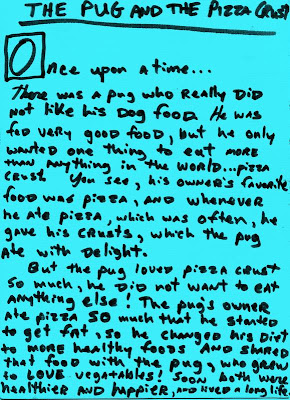 THE PUG AND THE PIZZA CRUST
Once upon a time...
There was a pug who Really DID
Not like his Dog food He was
fed very good food, but he only
wanted one thing to eat more
than anything in the world...pizza
crust You see, his owner's favorite
food was pizza, and whenever
he ate pizza, which was often, he
gave his crusts, which the pug
ate with Delight.
But the pug loved pizza crust
so much, he did not want to eat
anything else! The pug's owner
ate pizza so much that he started
to get fat, so he changed his Diet
to more healthy foods and shared
that food with the pug, who grew
to love vegatables! Soon both were
healthier and happier, and lived a long life.